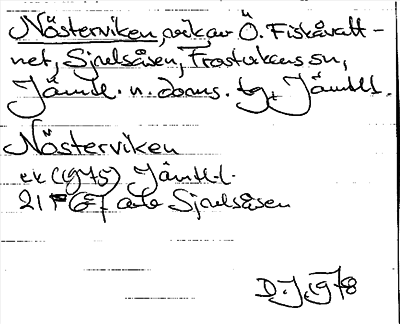 Nästerviken, vik av Ö. Fiskåvatt-
net, Sjoulsåsen, Frostvikens sn,
Jämtl. n. doms. tg, Jämtl.
Näster viken
ek (1975) Jämtl.l.
21 F 6-7 a-b Sjoulsåsen
D.J. 1978